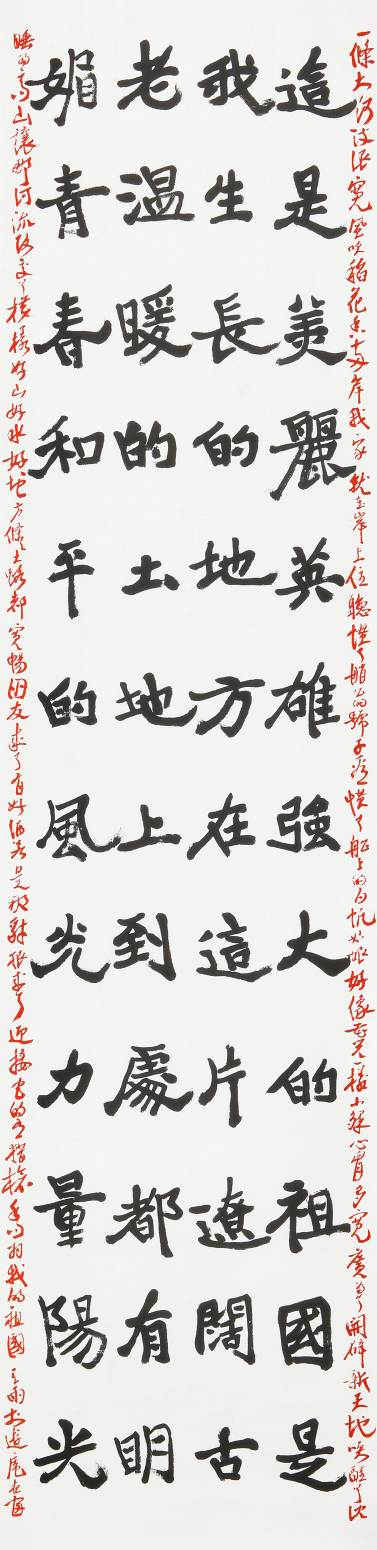 一條大河波浪寬風吹稻花香兩岸我家就在岸上住聽慣了艄公的號子看慣了船上的白帆姑娘好像花兒一樣小夥心胸多寬廣為了開辟新天地喚醒了沈
這是美麗英雄強大的祖國是
我生長的地方在這片遼闊古
老溫暖的土地上到處都有明
媚青春和平的風光力量陽光
睡的高山讓那河流改變了模樣好山好水好地方條條大路都寬暢朋友來了有好酒若是那豺狼來了迎接它的有獵槍我的祖國